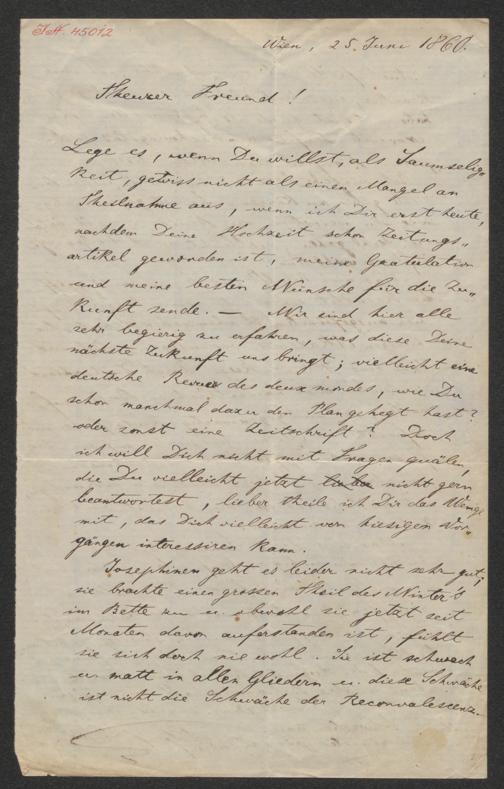 J.N. 45012
Wien, 25. Juni 1860.
Theurer Freund!
Lege es, wenn Du willst, als Saumselig„
keit, gewiss nicht als einen Mangel an
Theilnahme aus, wenn ich Dir erst heute,
nachdem Deine Hochzeit schon Zeitungs„
artikel geworden ist, meine Gratulation
und meine besten Wünsche für die Zu„
kunft sende. — Wir sind hier alle
sehr begierig zu erfahren, was diese Deine
nächste Zukunft uns bringt; vielleicht eine
deutsche Revue des deux mondes, wie Du
schon manchmal dazu den Plan gehegt hast?
oder sonst eine Zeitschrift? Doch
ich will Dich nicht mit Fragen quälen,
die Du vielleicht jetzt nicht gern
beantwortest, lieber theile ich Dir das Wenige
mit, das Dich vielleicht von hiesigen Vor„
gängen interessiren kann.
Josephinen geht es leider nicht sehr gut;
sie brachte einen grossen Theil des Winter's
im Bette zu u. obwohl sie jetzt seit
Monaten davon auferstanden ist, fühlt
sie sich doch nie wohl. Sie ist schwach
u. matt in allen Gliedern u. diese Schwäche
ist nicht die Schwäche der Reconvalescenz.